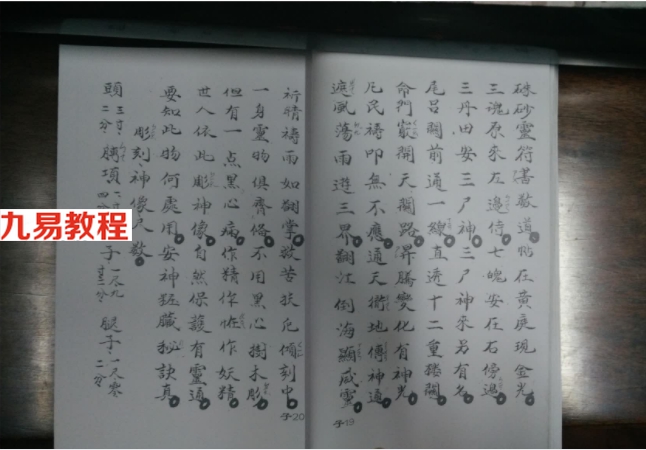 硃砂靈符書数道帖在黃庭現金光
三魂原来左邉侍七魄安在右傍邉
三丹田安三尸神三尸神来另有名
尾吕關前通一線直透十二重楼關
命門竅開天闊路昇騰變化有神光
凡民禱叩無不應通天徹地傳神通
遮風蕩雨遊三界翻江倒海顯威靈
子19
祈晴禱雨如翻掌救苦扶危傾刻中
一身靈昐俱齊俻不用黑心樹木彫
但有一点黑心病作精作怪作妖精
世人依此彫神像自然保護有靈通
要知此昐何處用安神猛臟秘訣真
彫刻神像尺数
頭三寸二分 腿子一尺零二分
子20
九易教程